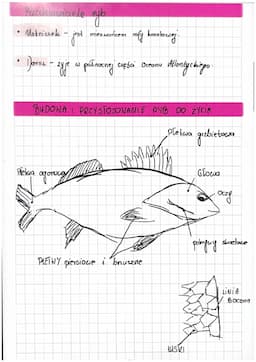 ryb
• - jest mieszkańcem rafy koralowej.
• Dorsz - żyje w północnej części Oceanu Atlantyckiego.
BUDOWA I PRZYSTOSOWANIE RYB DO ŻYCIA
płetwa grzbietowa
Głowa
Płetwa ogonowa
Oczy
pokrywy skrzelowe
PŁETWY piersiowe i brzuszne
LINIA
BOCZNA
ŁUSKI